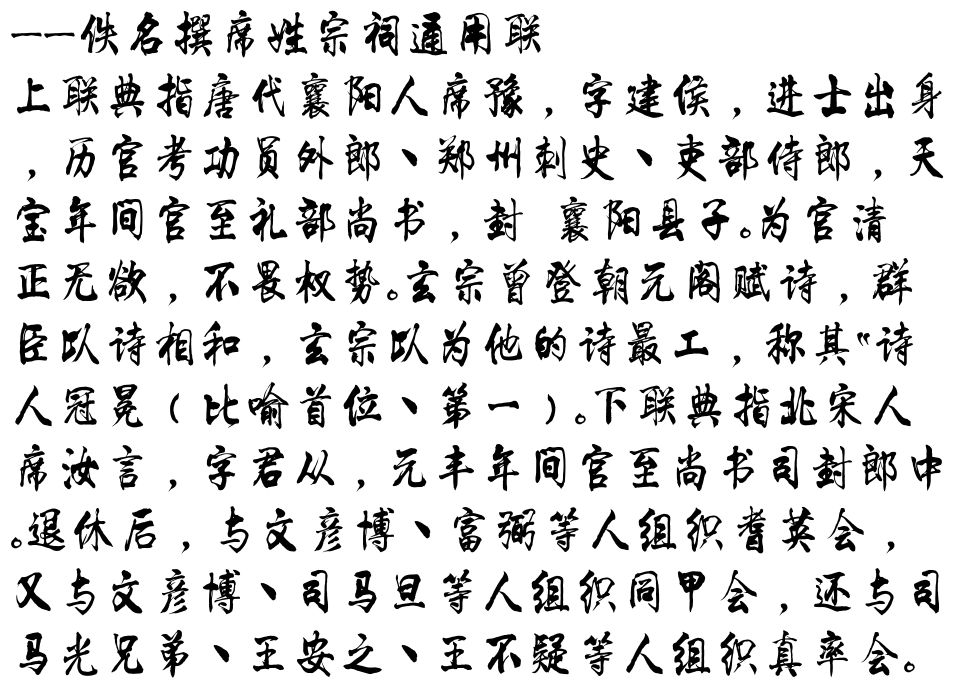 ——佚名撰席姓宗祠通用联
上联典指唐代襄阳人席豫，字建侯，进士出身
，历官考功员外郎、郑州刺史、吏部侍郎，天
宝年间官至礼部尚书，封 襄阳县子。为官清
正无欲，不畏权势。玄宗曾登朝元阁赋诗，群
臣以诗相和，玄宗以为他的诗最工，称其“诗
人冠冕（比喻首位、第一）。下联典指北宋人
席汝言，字君从，元丰年间官至尚书司封郎中
。退休后，与文彦博、富弼等人组织耆英会，
又与文彦博、司马旦等人组织同甲会，还与司
马光兄弟、王安之、王不疑等人组织真率会。